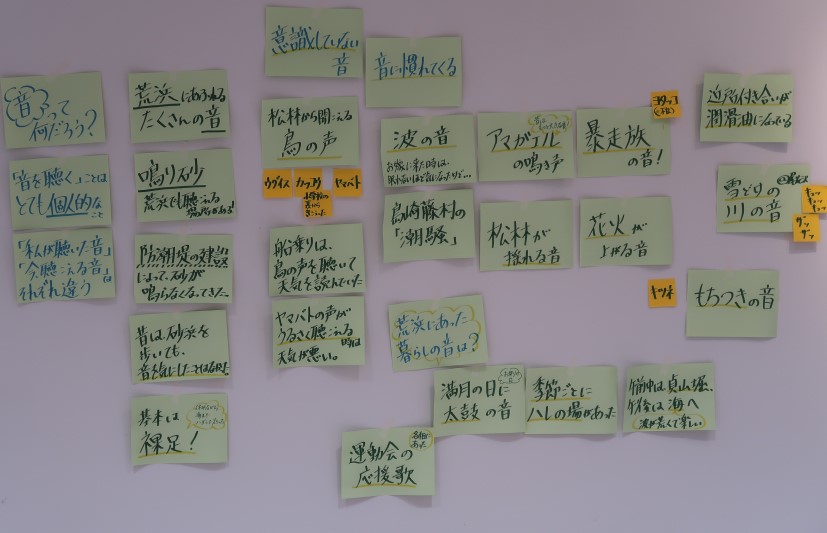 音って
何だろう？
「音を聴く」ことは
とても個人的な
こと
「本人が聴いた音」
「今聴こえる音」は
それぞれ違う
荒浜にあふれる
たくさんの音
鳴り砂
荒浜でも聴こえる
場所がある!
防潮堤の建設
によって、砂が
鳴らなくなってきた
昔は、砂浜を
歩いても、
音を気にしたことはなかった
基本は
裸足！
意識していない
音
音に慣れてくる
松林から聞こえる
鳥の声
ウグイス
カッコウ
ヤマバト
船乗りは、
鳥の声を聴いて
天気を読んでいた
ヤマバトの声が
うるさく聴こえる
時は
天気が悪い。
波の音
お嫁に来た時は、
眠れないほど気になったけど…
島崎藤村の
「潮騒」
アマガエル
の鳴き声
松林が
揺れる音
暴走族
の音！
花火が
上がる音
荒浜にあった
暮らしの音は？
満月の日に
太鼓の音
季節ごとに
ハレの場があった
午前中は貞山堀、
午後は海へ
波が荒くて楽しい
運動会の
応援歌
各町に
あった
近所付き合いが
潤滑油になっている
雪どけの
川の音
キュッ
キュッ
キュッ
ザッ
ザッ
キツネ
もちつきの音